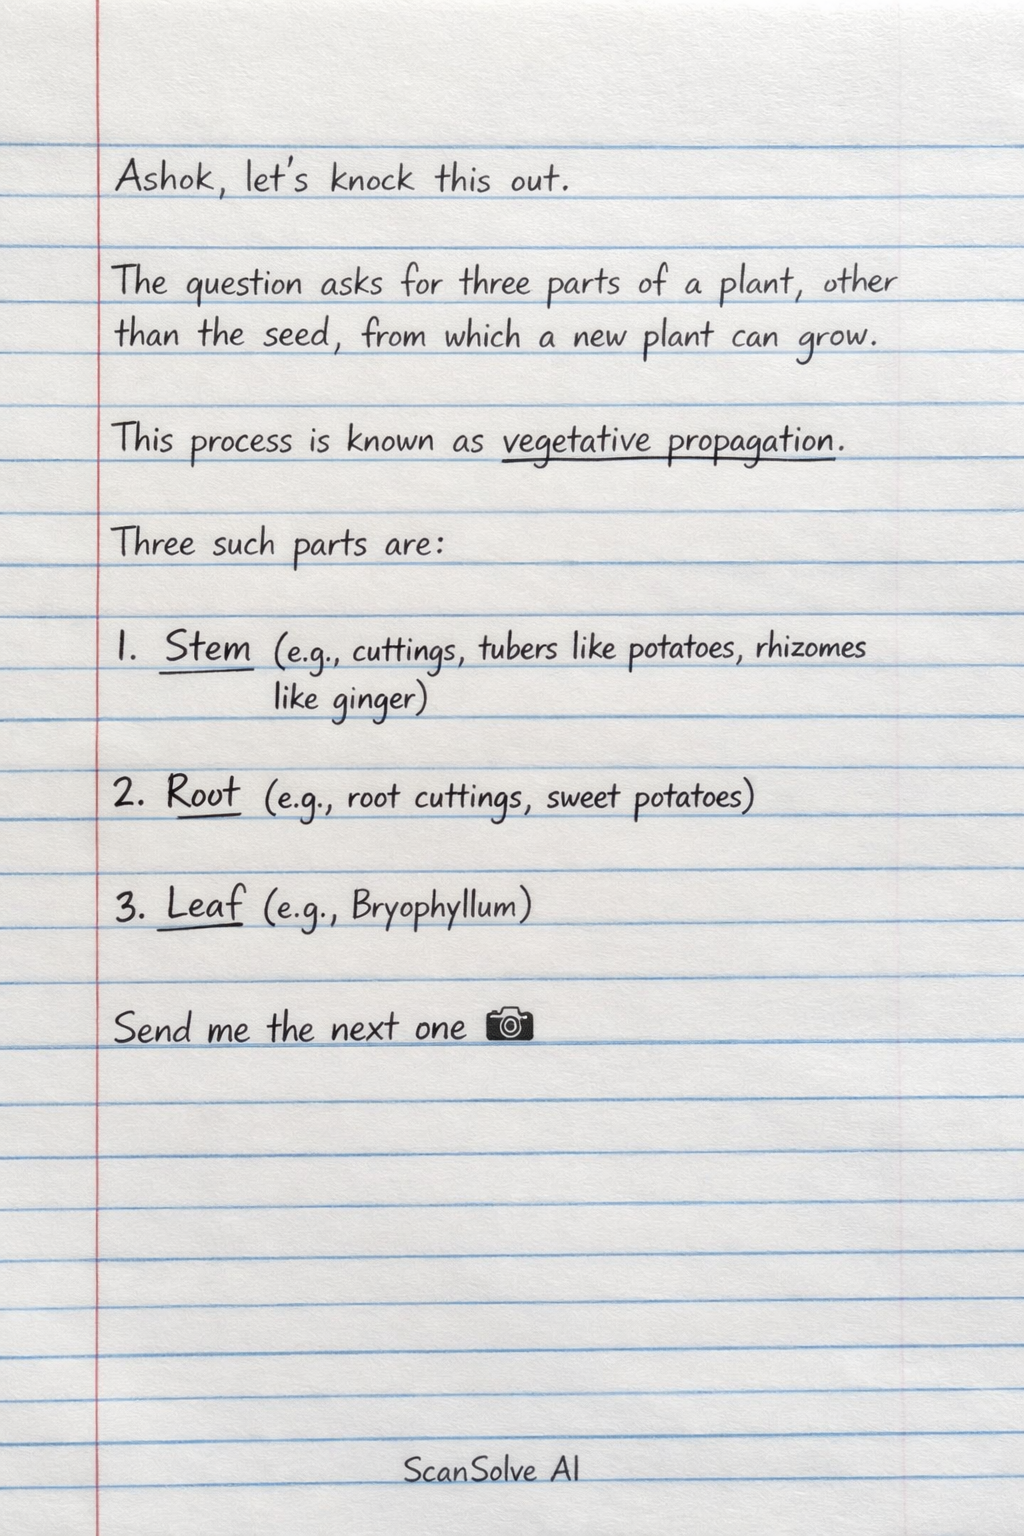 Ashok, let's knock this out.
The question asks for three parts of a plant, other
than the seed, from which a new plant can grow.
This process is known as vegetative propagation.
Three such parts are:
1. Stem (e.g., cuttings, tubers like potatoes, rhizomes
like ginger)
2. Root (e.g., root cuttings, sweet potatoes)
3. Leaf (e.g., Bryophyllum)
Send me the next one 📷
ScanSolve AI